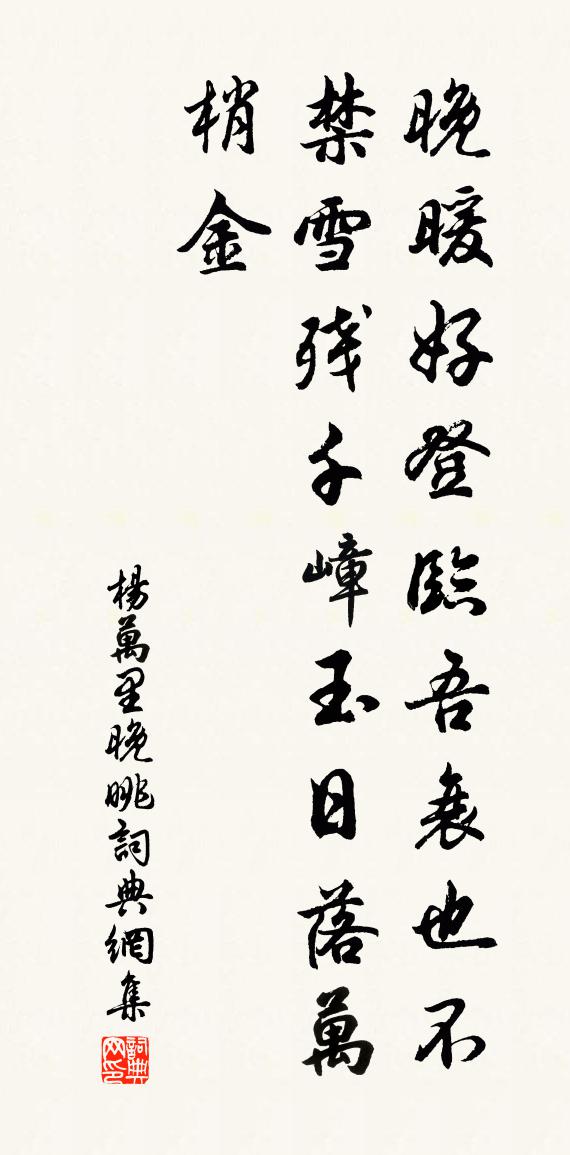 晚暖好登臨吾衰也不
禁雪殘千嶂玉日落萬
梢金
楊萬里晚眺詞典網集
詞典网印